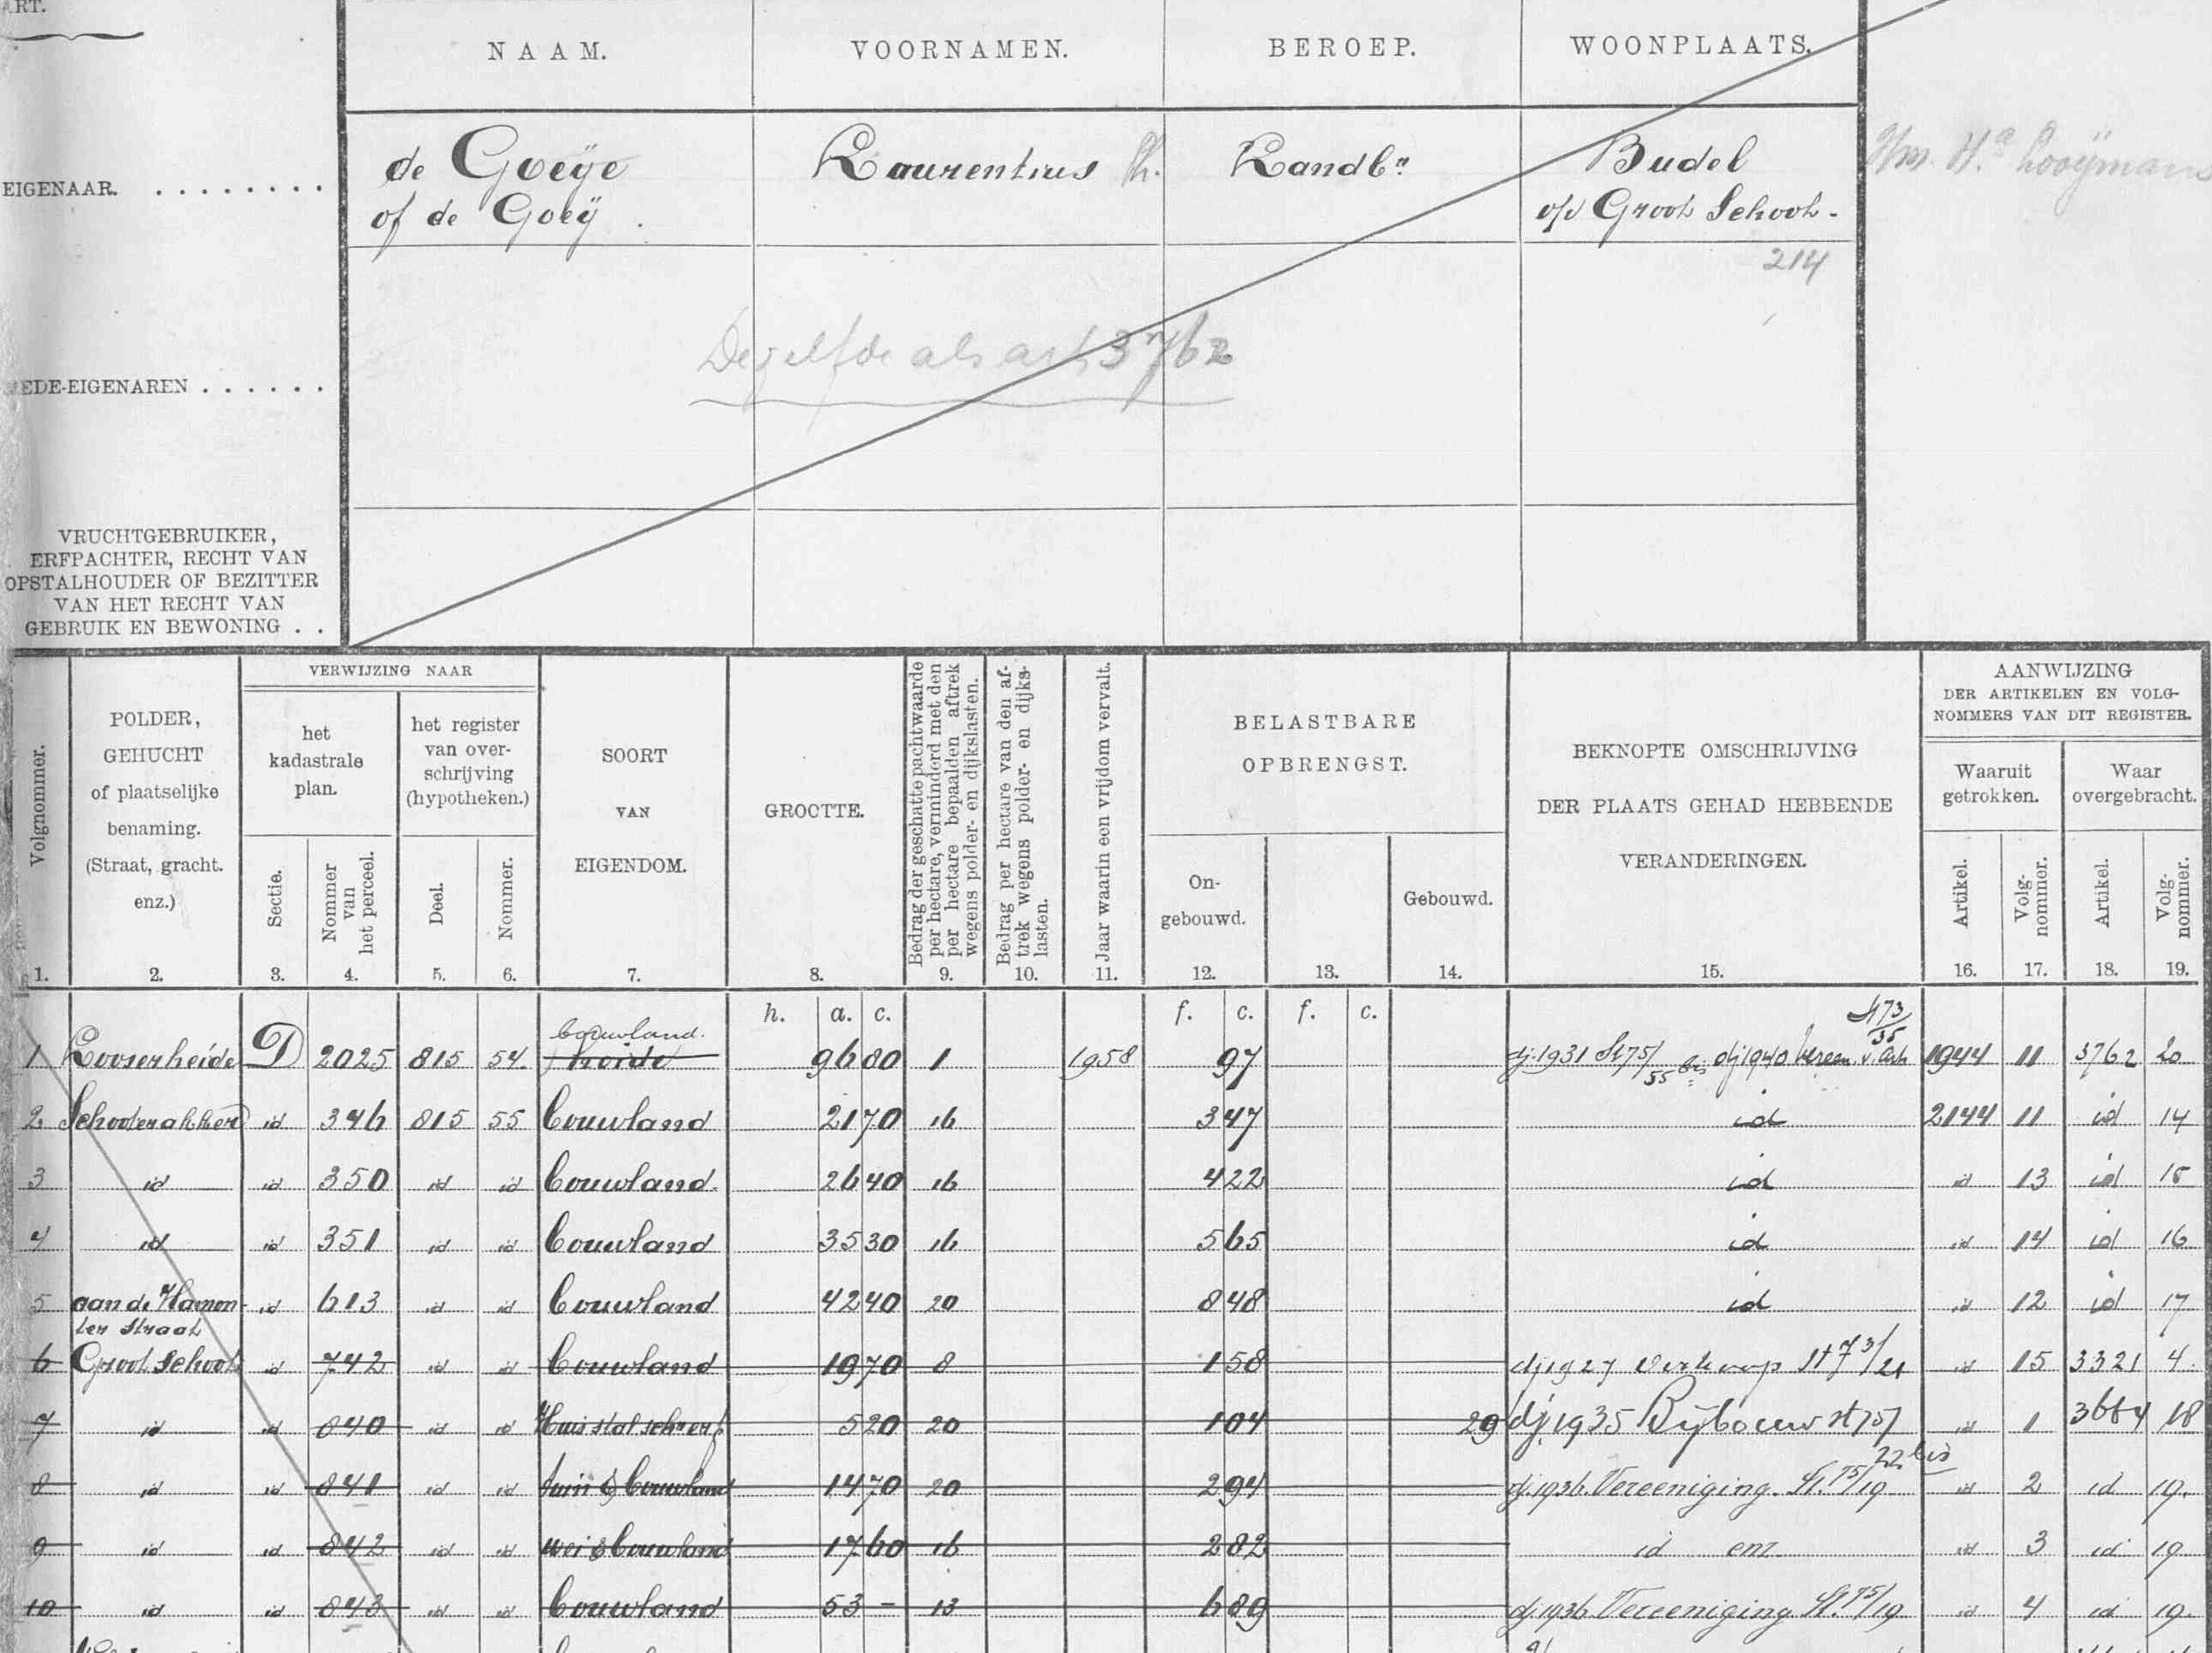 ART.
NAAM. VOORNAMEN. BEROEP. WOONPLAATS.
EIGENAAR. . . . . . . . . de Goeÿe Laurentius Th. Landbr. Budel Hm. Ha. Looÿmans
of de Goeÿ . o/d Groot Schoot.
214
Dezelfde als art 3762
MEDE-EIGENAREN . . . . . .
VRUCHTGEBRUIKER,
ERFPACHTER, RECHT VAN
OPSTALHOUDER OF BEZITTER
VAN HET RECHT VAN
GEBRUIK EN BEWONING . .
Volgnommer.
POLDER,
GEHUCHT
of plaatselijke
benaming.
(Straat, gracht.
enz.)
VERWIJZING NAAR
het
kadastrale
plan.
Sectie.
Nommer
van
het perceel.
het register
van over-
schrijving
(hypotheken.)
Deel.
Nommer.
SOORT
VAN
EIGENDOM.
GROOTTE.
Bedrag der geschatte pachtwaarde
per hectare, verminderd met den
per hectare bepaalden aftrek
wegens polder- en dijkslasten.
Bedrag per hectare van den af-
trek wegens polder- en dijks-
lasten.
Jaar waarin een vrijdom vervalt.
BELASTBARE
OPBRENGST.
On-
gebouwd.
Gebouwd.
BEKNOPTE OMSCHRIJVING
DER PLAATS GEHAD HEBBENDE
VERANDERINGEN.
AANWIJZING
DER ARTIKELEN EN VOLG-
NOMMERS VAN DIT REGISTER.
Waaruit
getrokken.
Artikel.
Volg-
nommer.
Waar
overgebracht.
Artikel.
Volg-
nommer.
1. 2. 3. 4. 5. 6. 7. 8. 9. 10. 11. 12. 13. 14. 15. 16. 17. 18. 19.
h. a. c. f. c. f. c.
bouwland. St 73/35
1 Loozerheide D 2025 815 54. heide 96 80 1 1958 97 dj. 1931 St 75/55 bis dj 1940 Vereen. v. Art 1944 11 3762 20
2 Schooterakkers id 346 815 55 bouwland 21 70 16 3 47 id 2144 11 id 14
3 id id 350 id id bouwland. 26 40 16 4 22 id id 13 id 15
4 id id 351 id id bouwland 35 30 16 5 65 id id 14 id 16
5 aan de Hamon- id 613 id id bouwland 42 40 20 8 48 id id 12 id 17
ter straat
6 Groot Schoot id 742 id id bouwland 19 70 8 1 58 dj 1927 Verkoop St 73/21 id 15 3321 4.
7 id id 840 id id Huis stal schr erf 5 20 20 1 04 29 dj. 1935 Bijbouw st 75/22 bis id 1 3664 18
8 id id 841 id id tuin & bouwland 14 70 20 2 94 dj. 1936. Vereeniging. St. 75/19 id 2 id 19.
9 id id 842 id id wei & bouwland 17 60 16 2 82 id enz id 3 id 19
10 id id 843 id id bouwland 53 - 13 6 89 dj. 1936. Vereeniging St. 75/19 id 4 id 19.